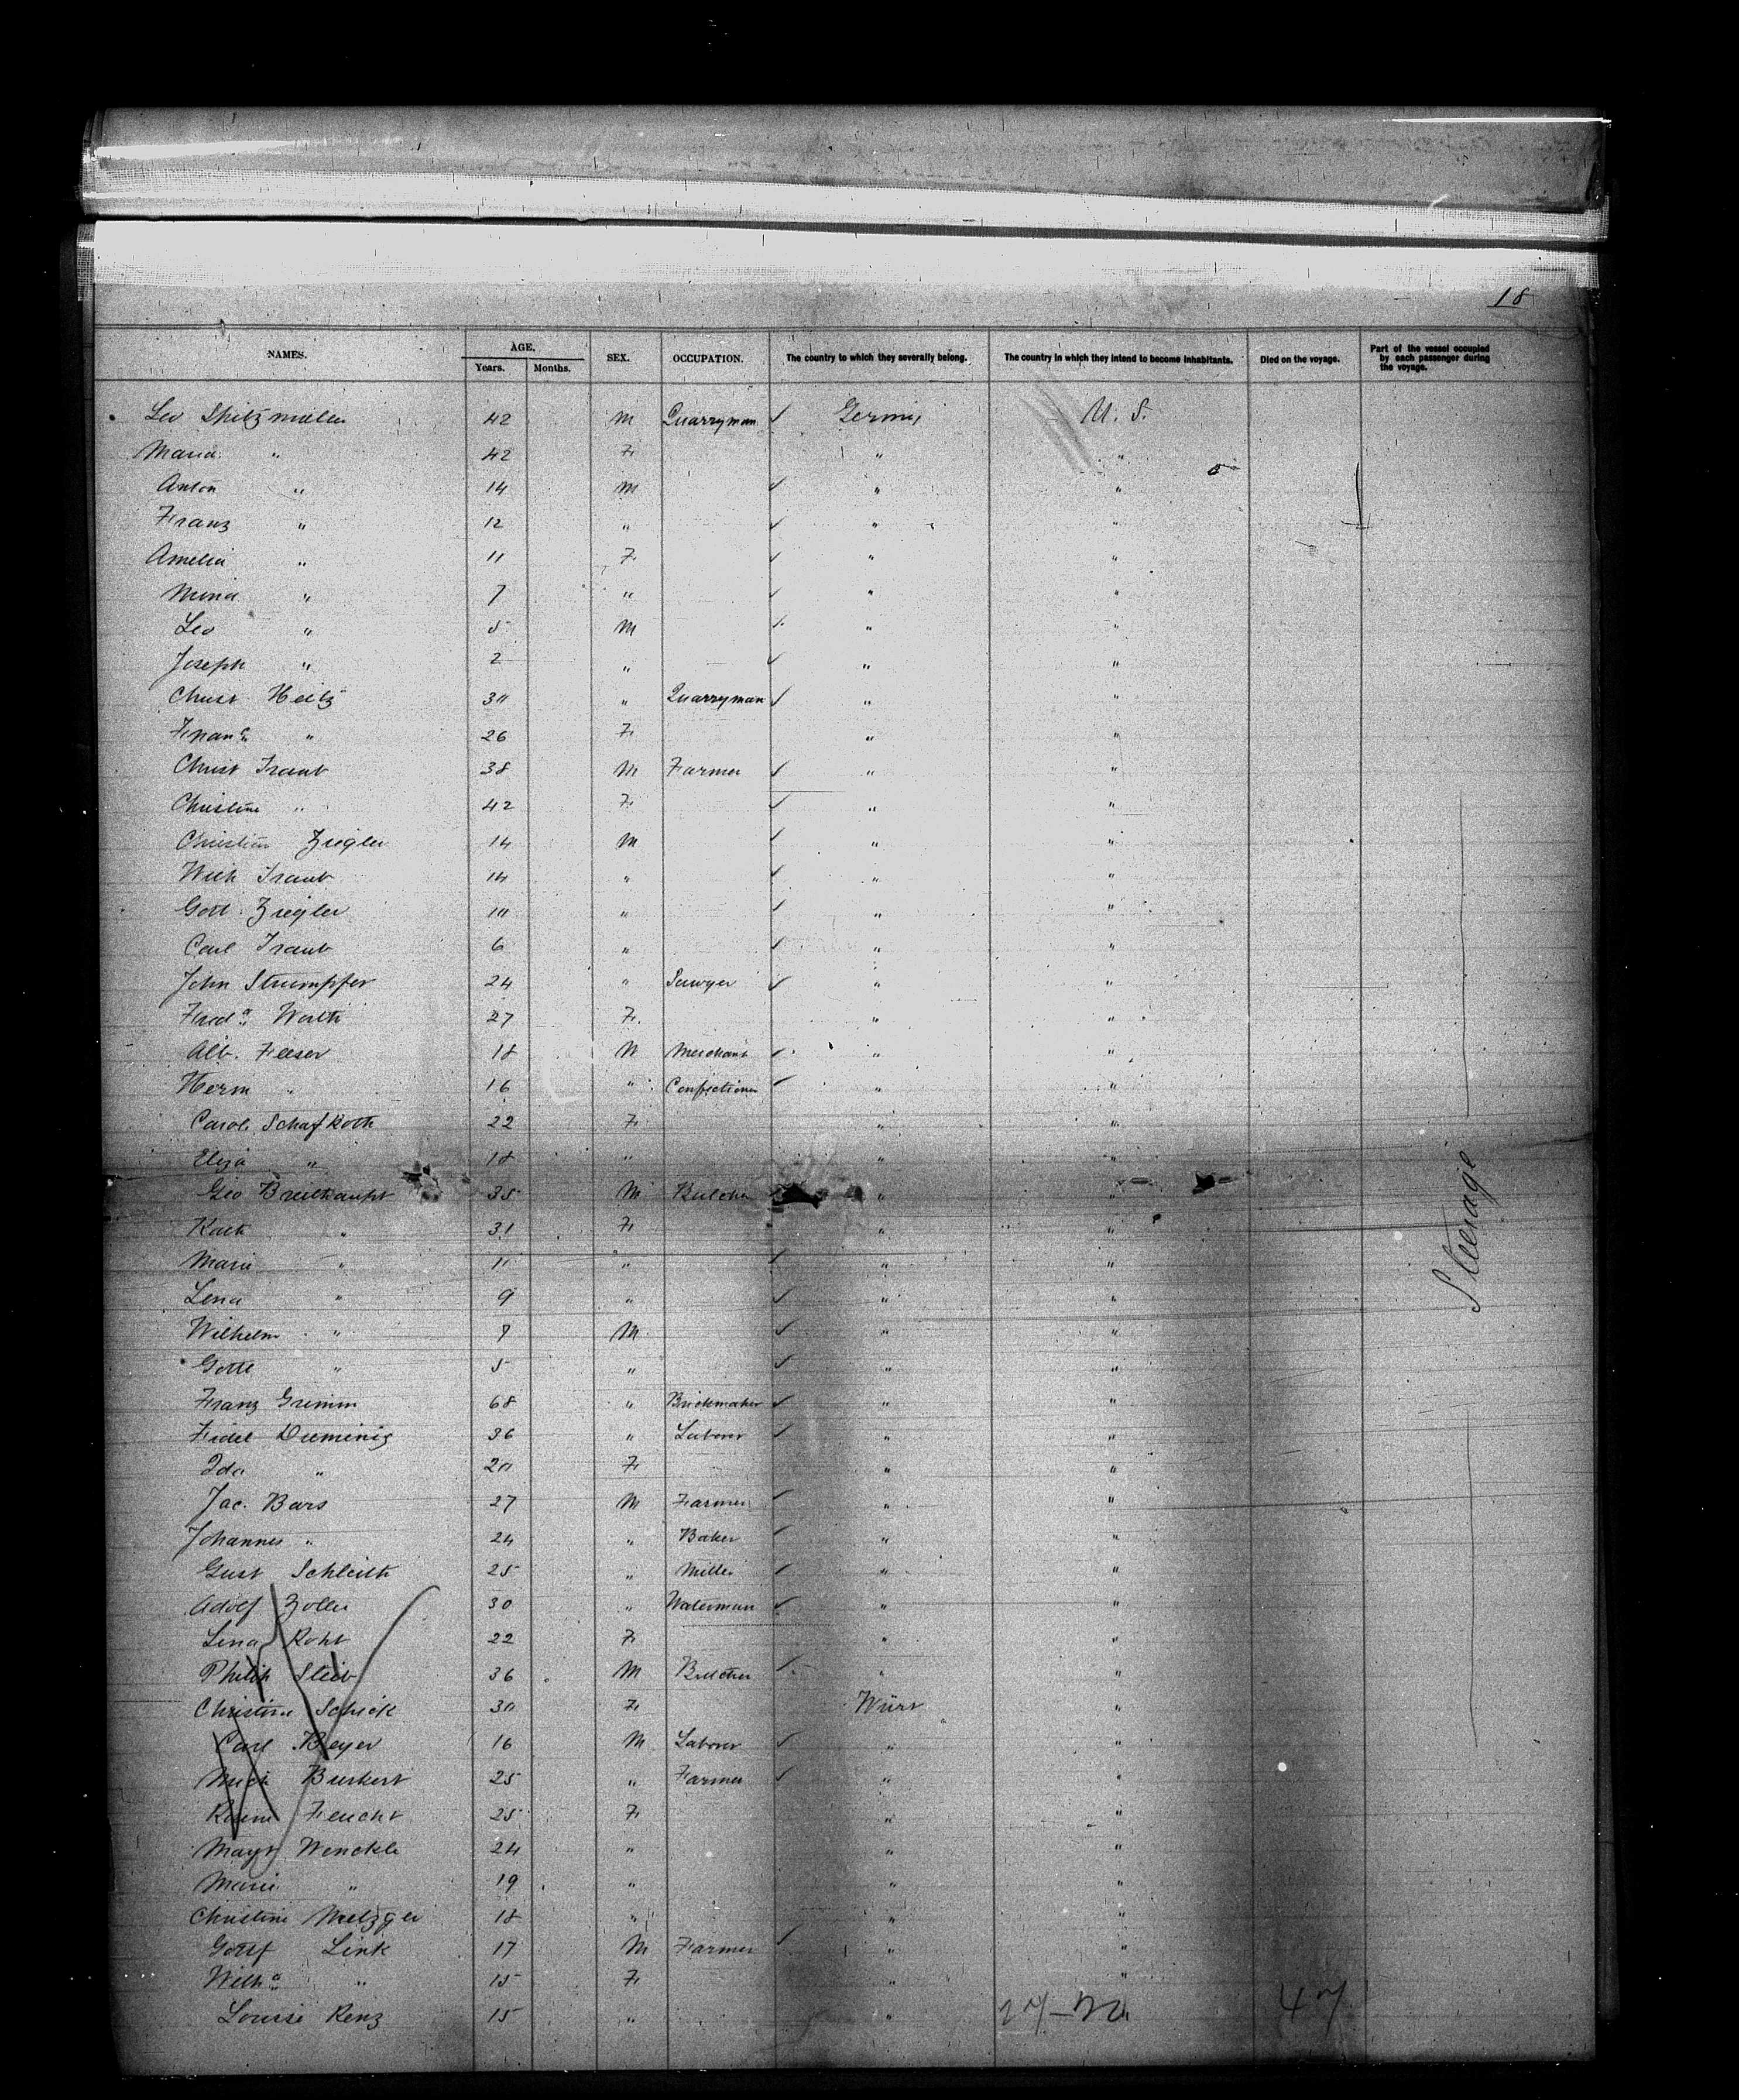 18
NAMES. AGE. SEX. OCCUPATION. The country to which they severally belong. The country in which they intend to become inhabitants. Died on the voyage. Part of the vessel occupied by each passenger during the voyage.
Years. Months.
Leo Spitzmuller 42 M Quarryman ✓ Germy U. S.
Maria " 42 F " "
Anton " 14 M ✓ " "
Franz " 12 " ✓ " "
Amelia " 11 F ✓ " "
Mina " 7 " ✓ " "
Leo " 5 M ✓ " "
Joseph " 2 " ✓ " "
Christ Heitz 30 " Quarryman ✓ " "
" 26 F " "
Christ Traub 38 M Farmer ✓ " "
Christine " 42 F ✓ " "
Christian Ziegler 14 M ✓ " "
Traub 14 " ✓ " "
Gott. Ziegler 10 " ✓ " "
Carl Traub 6 " ✓ " "
John Strumpfer 24 " Sawyer ✓ " "
Freda Worth 27 F " "
Alb. Feeser 18 M Merchant ✓ " "
Herm " 16 " Confectioner ✓ " "
Carol. Schafkoth 22 F " "
Eliza " 18 " " "
Geo Breithaupt 35 M Butcher ✓ " "
Kath " 31 F " "
Marie " 11 " ✓ " "
Lena " 9 " ✓ " "
Wilhelm " 7 M ✓ " "
Gottl " 5 " ✓ " "
Franz Grimm 68 " Brickmaker ✓ " "
Fidel Dieminig 36 " Laborer ✓ " "
Ida " 20 F " "
Jac. Bars 27 M Farmer ✓ " "
Johannes " 24 " Baker ✓ " "
Gust Schleith 25 " Miller ✓ " "
Adolf Zoller 30 " Waterman ✓ " "
Lena Roht 22 F " "
Philip Steib 36 M Butcher ✓ " "
Christine Schick 30 F Würt "
Carl Beyer 16 M Laborer ✓ " "
Mich Burkert 25 " Farmer ✓ " "
Feucht 25 F " "
Wenckle 24 " " "
Marie " 19 " " "
Christine Metzger 18 " " "
Gottf Link 17 M Farmer ✓ " "
Wilha " 15 F " "
Louise Renz 15 " " "
47
Steerage